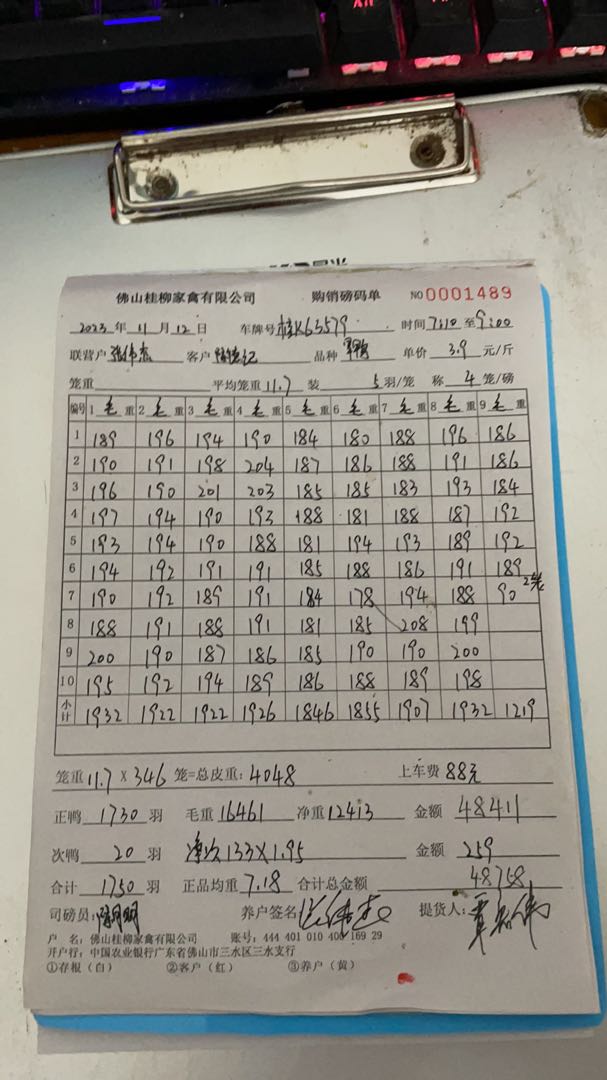 佛山桂柳家禽有限公司 购销磅码单 NO 0001489
2023年 11月 12日 车牌号 K63579 时间 7:10 至 9:00
联营户 张伟杰 客户 品种 单价 3.9 元/斤
笼重 平均笼重 11.7 装 5 羽/笼 称 4 笼/磅
编号 1 毛 重 2 毛 重 3 毛 重 4 毛 重 5 毛 重 6 毛 重 7 毛 重 8 毛 重 9 毛 重
1 189 196 194 190 184 180 188 196 186
2 190 191 198 204 187 186 188 191 186
3 196 190 201 203 185 185 183 193 184
4 197 194 190 193 188 181 188 187 192
5 193 194 190 188 181 194 193 189 192
6 194 192 191 191 185 188 186 191 189
7 190 192 189 191 184 178 194 188 90 2笼
8 188 191 188 191 181 185 208 199
9 200 190 187 186 185 190 190 200
10 195 192 194 189 186 188 189 198
小计 1932 1922 1922 1926 1846 1855 1907 1932 1219
笼重 11.7 × 346 笼=总皮重: 4048 上车费 88元
正鸭 1730 羽 毛重 16461 净重 12413 金额 48411
次鸭 20 羽 净次 133×1.95 金额 259
合计 1750 羽 正品均重 7.18 合计总金额 48758
司磅员: 养户签名 张伟杰 提货人:
户 名: 佛山桂柳家禽有限公司 账号: 444 401 010 400 169 29
开户行: 中国农业银行广东省佛山市三水区三水支行
①存根（白） ②客户（红） ③养户（黄）